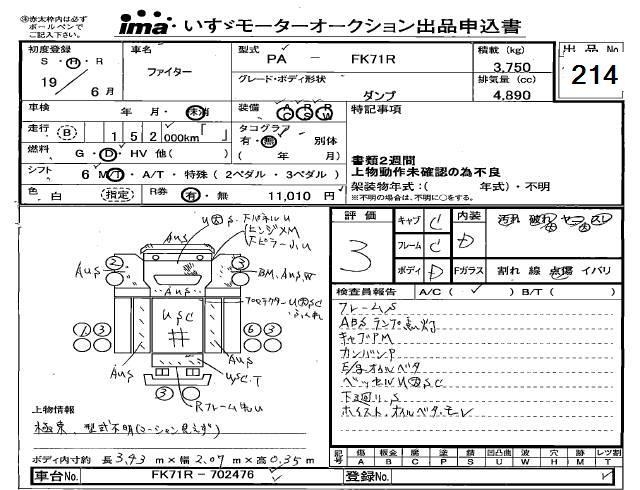 ㊟赤太枠内は必ず
ボールペンで
ご記入下さい。
ima いすゞモーターオークション出品申込書
初度登録
S・H・R
19年 6月
車名
ファイター
型式
PA － FK71R
グレード・ボディ形状
ダンプ
積載 (kg)
3,750
排気量 (cc)
4,890
出品 No
214
車検 年 月・未消
走行 B 152,000km
燃料 G・D・HV 他( )
シフト 6 M/T・A/T・特殊(2ペダル・3ペダル)
色 白 (指定)
R券 有・無 11,010 円
装備 A/C P/S P/W
タコグラフ
有・無 別体
( 年 月)
特記事項
書類2週間
上物動作未確認の為不良
架装物年式:( 年式)・不明
※不明の場合は、不明に○をする。
評価
3
キャブ C
フレーム C
ボディ D
内装 D
Fガラス
汚れ 破れ ヤニ スレ
割れ 線 点傷 イバリ
検査員報告 A/C ( ✓ ) B/T ( )
フレームS
ABSランプ点灯
キャブPM
E/gオイルベタ
ベッセルU凹SC
下廻りS
ホイスト、オイルベタ・モレ
ヒンジXM
AUS
AUS
AUS
BM、AUS、W
AUS
USC
AUS
AUS
USC.T
RフレームU
② ③ ① ③ ⑥ ③ ③
上物情報
極東、型式不明(コーション見えず)
ボディ内寸約 長 3.43 m × 幅 2.07 m × 高 0.35 m
記号 傷 板金 腐 塗 錆 凹凸曲 波 穴 跡 レツ割
A B C P S U W H M T
車台No. FK71R － 702476
登録No.